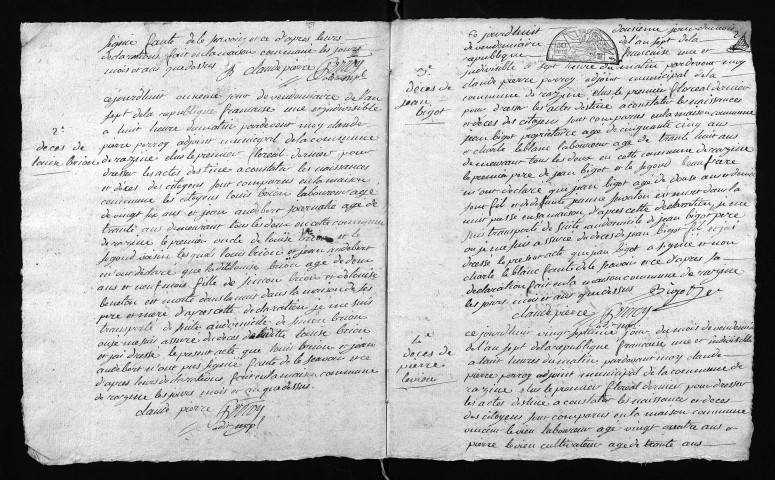 signée faute de le sçavoir et ce d'apres leurs
declarations fait en la maison commune les jours
mois et an que dessus claude pierre
adj mpl
2e
deces de
louise brion
cejourdhuit onzieme jour de vendemiaire de l'an
sept de la republique francaise une et indivisible
a huit heure du matin pardevent moy claude
pierre adjoint municipal de la commune
de razine elus le premier floreal dernier pour
dresser les actes destine a constater les naissances
et deces des citoyens sont comparus en la maison
commune les citoyens louis brion laboureur age
de vingt six ans et jean audebert journalié age de
trante ans demeurant tous les deux en cette commune
de razine le premier oncle de louise brion et le
segond voisin les quels louis brion et jean audebert
m'ont declaré que louise brion age de deux
ans et neuf mois fille de simon brion et de louise
beneton est morte dans la nuit dans la maison de ses
pere et mere d'apres cette declaration je me suis
transporté de suite au domicile de simon brion
ou je me suis assuré du deces de ladite louise brion
et j'ai dressé le present acte que louis brion et jean
audebert n'ont pas signée faute de le sçavoir et ce
d'apres leurs declarations fait en la maison commune
de razine les jours mois et an que dessus
claude pierre
adj mpl
3e
deces de
jean
bigot
cejourdhuit douzieme jour du mois
de vendemiaire de l'an sept de la
republique francaise une et
indivisible a sept heure du matin pardevent moy
claude pierre adjoint municipal de la
commune de razine elus le premier floreal dernier
pour dresser les actes destine a constater les naissances
et deces des citoyens sont comparus en la maison commune
jean bigot propriétaire age de cinquante cinq ans
et charle leblanc laboureur age de trante huit ans
demeurant tous les deux en cette commune de razine
le premier pere de jean bigot et le segond beau frere
m'ont declaré que jean bigot age de douze ans et demie
sont fil et de defunte est mort dans la
nuit passé en sa maison d'apres cette declaration je me
suis transporté de suite au domicile de jean bigot pere
ou je me suis assuré du deces de jean bigot fil et j'ai
dressé le present acte que jean bigot a signée et non
charle leblanc faute de le sçavoir et ce d'apres sa
declaration fait en la maison commune de razine
les jours mois et an que dessus bigot
claude pierre
adj mpl
4e
deces de
pierre
levien
cejourdhuit vingt septieme jour du mois de vendemiaire
de l'an sept de la republique francaise une et indivisible
a huit heures du matin pardevent moy claude
pierre adjoint municipal de la commune de
razine elus le premier floreal dernier pour dresser
les actes destine a constater les naissances et deces
des citoyens sont comparus en la maison commune
vincent levien laboureur age vingt quatre ans et
pierre levien cultivateur age de trante ans